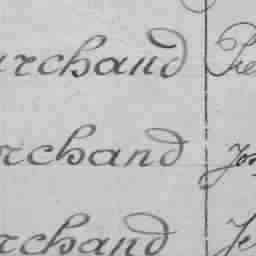 archand Pre
rchand Jos
rchand Je